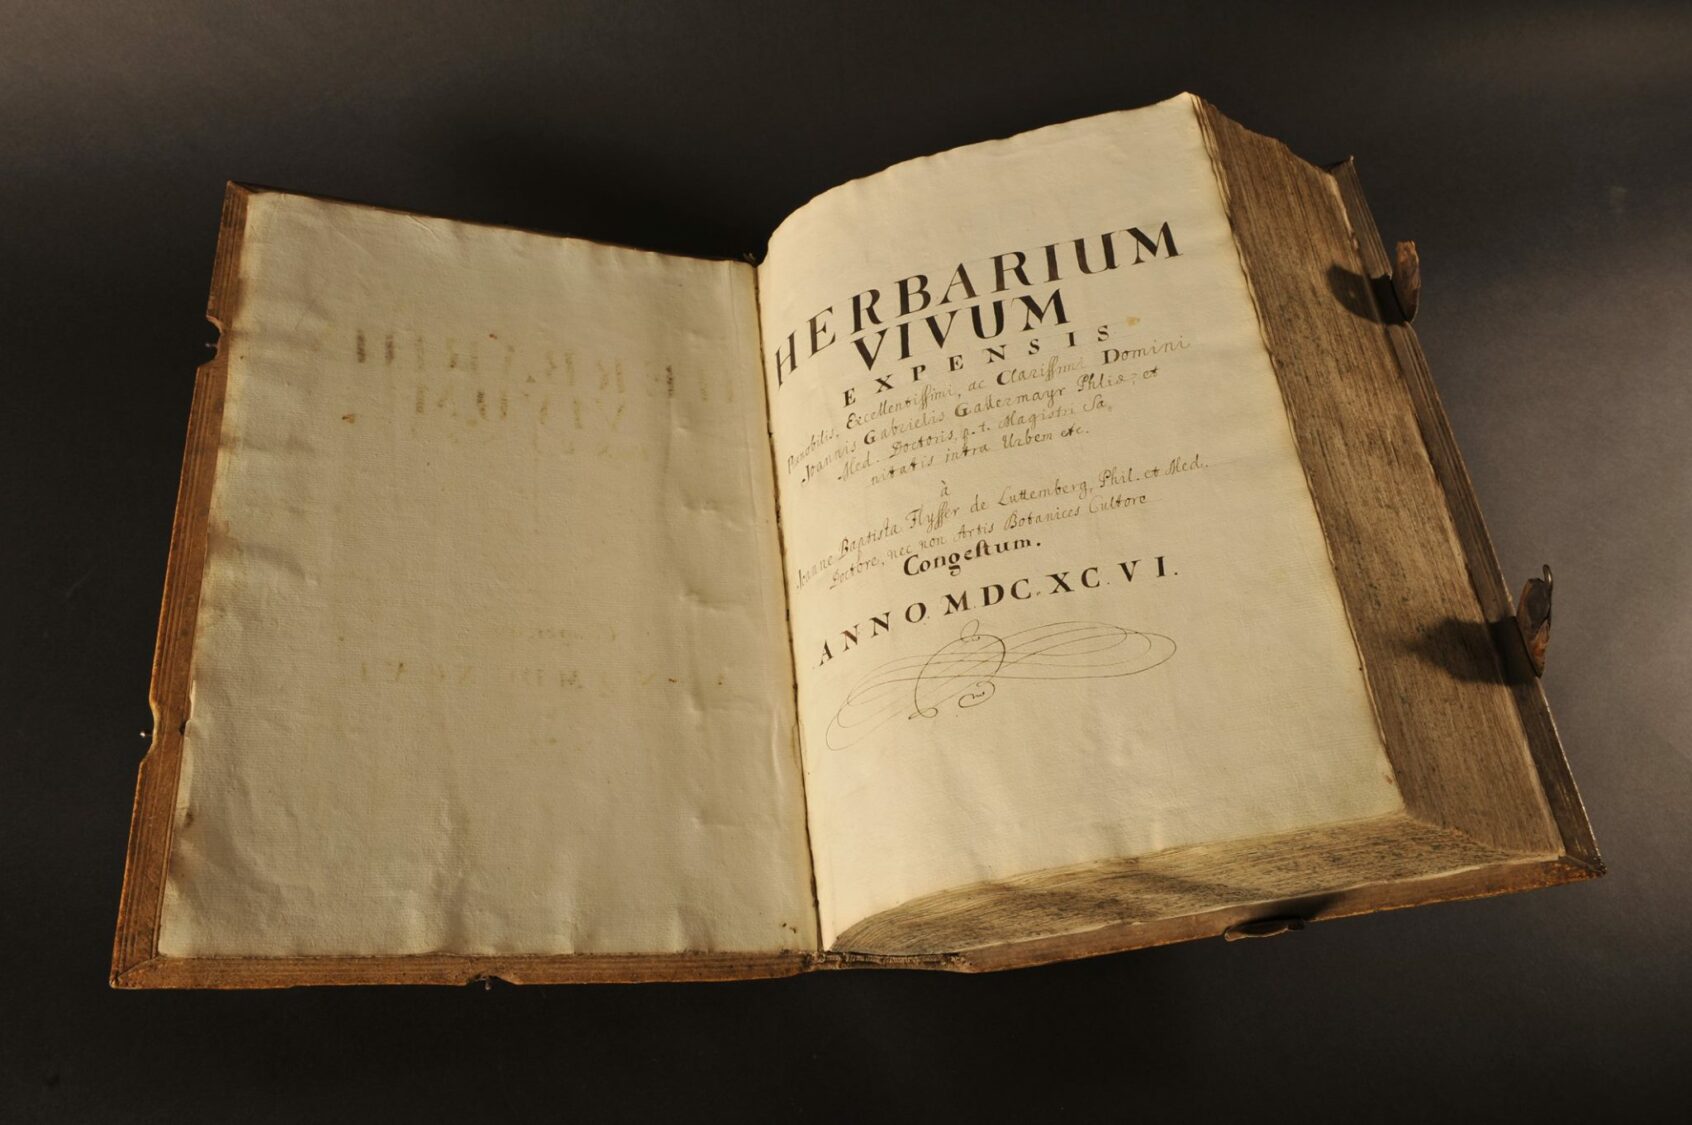 HERBARIUM
VIVUM
EXPENSIS
Prænobilis, Excellentissimi, ac Clarissimi Domini
Joannis Gabrielis Gallermayr Phliæ: et
Med. Doctoris, p. t. Magistri Sa,
nitatis intra Urbem etc.
à
Joanne Baptista Flysser de Luttemberg, Phil. et Med.
Doctore, nec non Artis Botanices Cultore
Congestum.
ANNO. M.DC.XC.VI.